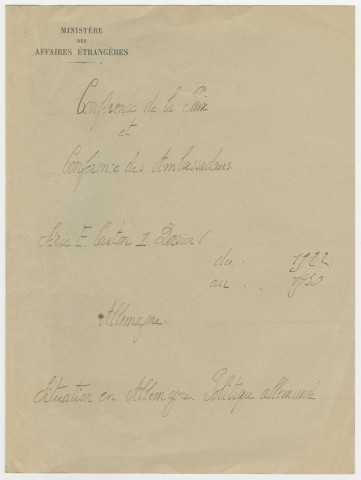 MINISTÈRE
DES
AFFAIRES ÉTRANGÈRES
Conférence de la Paix
et
Conférence des Ambassadeurs
Série E Carton 1 Dossier 1
du . 1922
au . . 1930
Allemagne.
Situation en Allemagne. Politique allemande